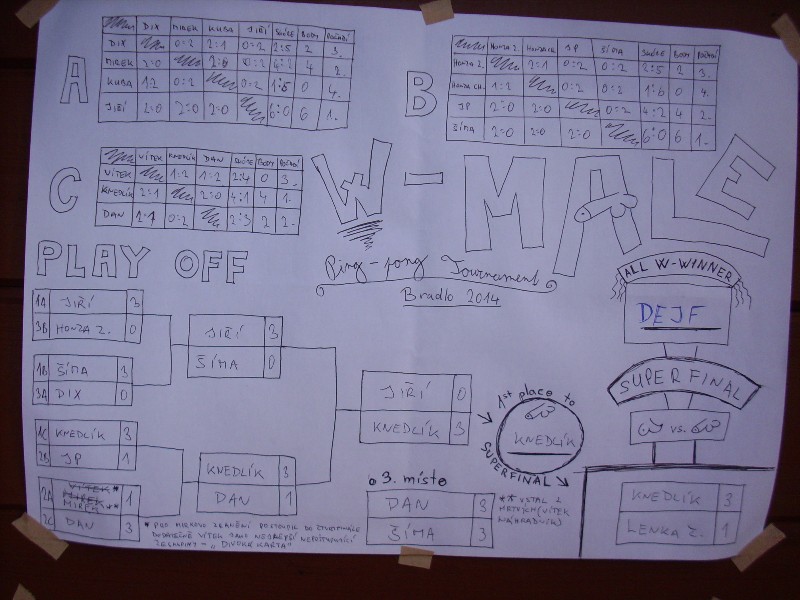 A
DIX MIREK KUBA JIŘÍ SKÓRE BODY POŘADÍ
DIX 0:2 2:1 0:2 2:5 2 3.
MIREK 2:0 2:0 0:2 4:2 4 2.
KUBA 1:2 0:2 0:2 1:6 0 4.
JIŘÍ 2:0 2:0 2:0 6:0 6 1.
B
HONZA Z. HONZA CH. JP ŠÍMA SKÓRE BODY POŘADÍ
HONZA Z. 2:1 0:2 0:2 2:5 2 3.
HONZA CH. 1:2 0:2 0:2 1:6 0 4.
JP 2:0 2:0 0:2 4:2 4 2.
ŠÍMA 2:0 2:0 2:0 6:0 6 1.
C
VÍTEK KNEDLÍK DAN SKÓRE BODY POŘADÍ
VÍTEK 1:2 1:2 2:4 0 3.
KNEDLÍK 2:1 2:0 4:1 4 1.
DAN 2:1 0:2 2:3 2 2.
W - MALE
Ping-pong Tournament
Bradlo 2014
PLAY OFF
1A JIŘÍ 3
3B HONZA Z. 0
1B ŠÍMA 3
3A DIX 0
1C KNEDLÍK 3
2B JP 1
2A VÍTEK* MIREK MIREK** 1
2C DAN 3
JIŘÍ 3
ŠÍMA 0
KNEDLÍK 3
DAN 1
JIŘÍ 0
KNEDLÍK 3
o 3. místo
DAN 3
ŠÍMA 3
1st place to
KNEDLÍK
SUPERFINAL
* PRO MIRKOVO ZRANĚNÍ POSTOUPIL DO ČTVRTFINÁLE
DODATEČNĚ VÍTEK JAKO NEJLEPŠÍ NEPOSTUPUJÍCÍ
ZE SKUPINY - „DIVOKÁ KARTA"
** VSTAL Z
MRTVÝCH (VÍTEK
NÁHRADNÍK)
ALL W-WINNER
DEJF
SUPERFINAL
VS.
KNEDLÍK 3
LENKA Z. 1